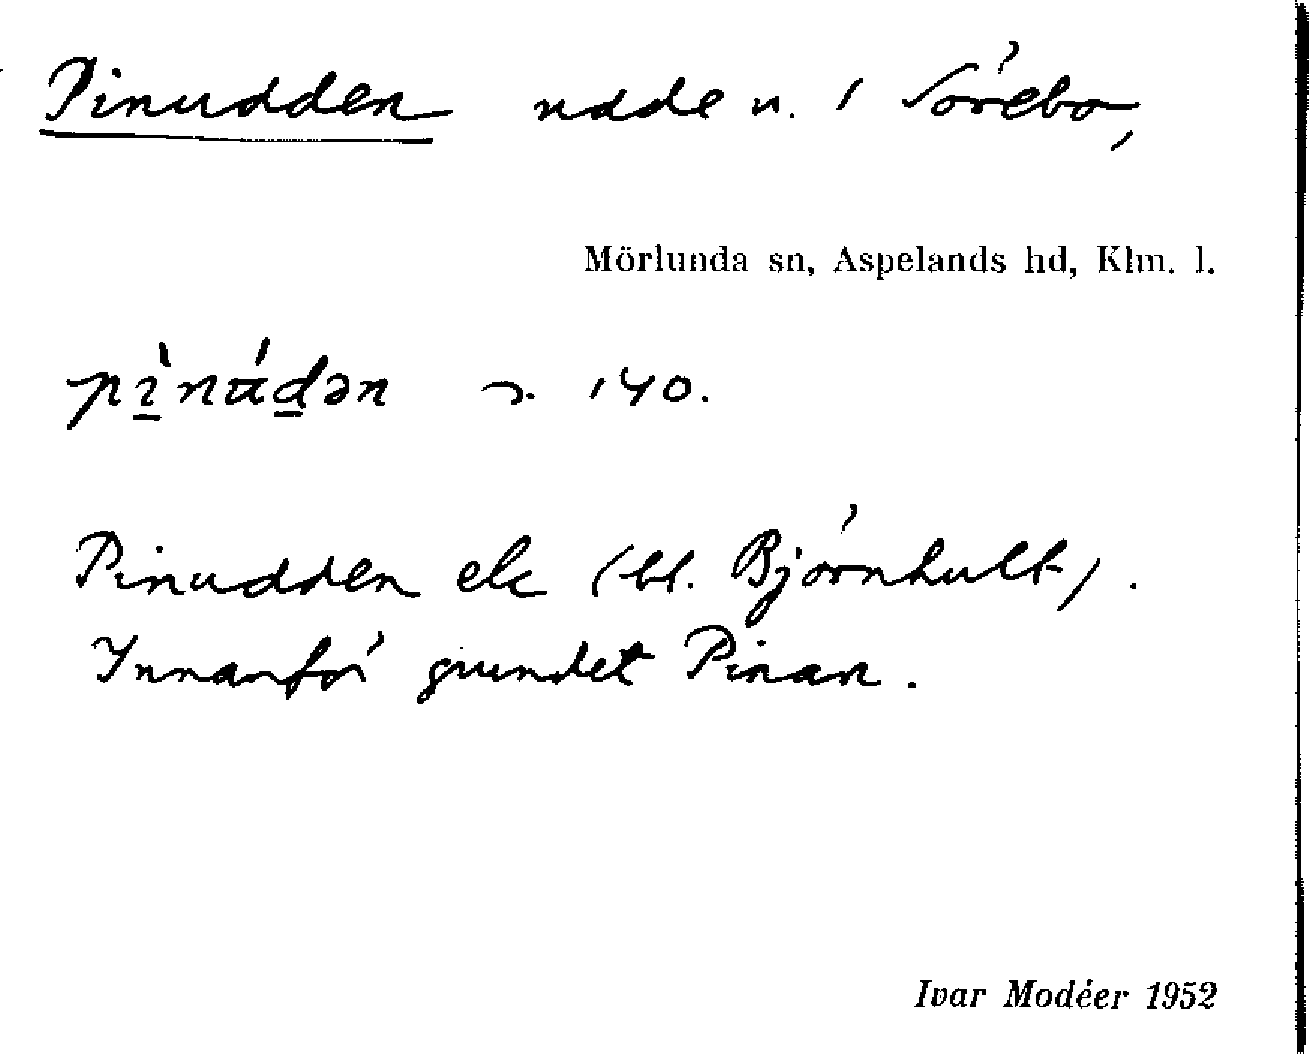 Pinudden udde n. i Sörebo,
Mörlunda sn, Aspelands hd, Klm. l.
pì̱núḏən 140.
Pinudden ek (bl. Björnhult).
Innanför grundet Pinan.
Ivar Modéer 1952